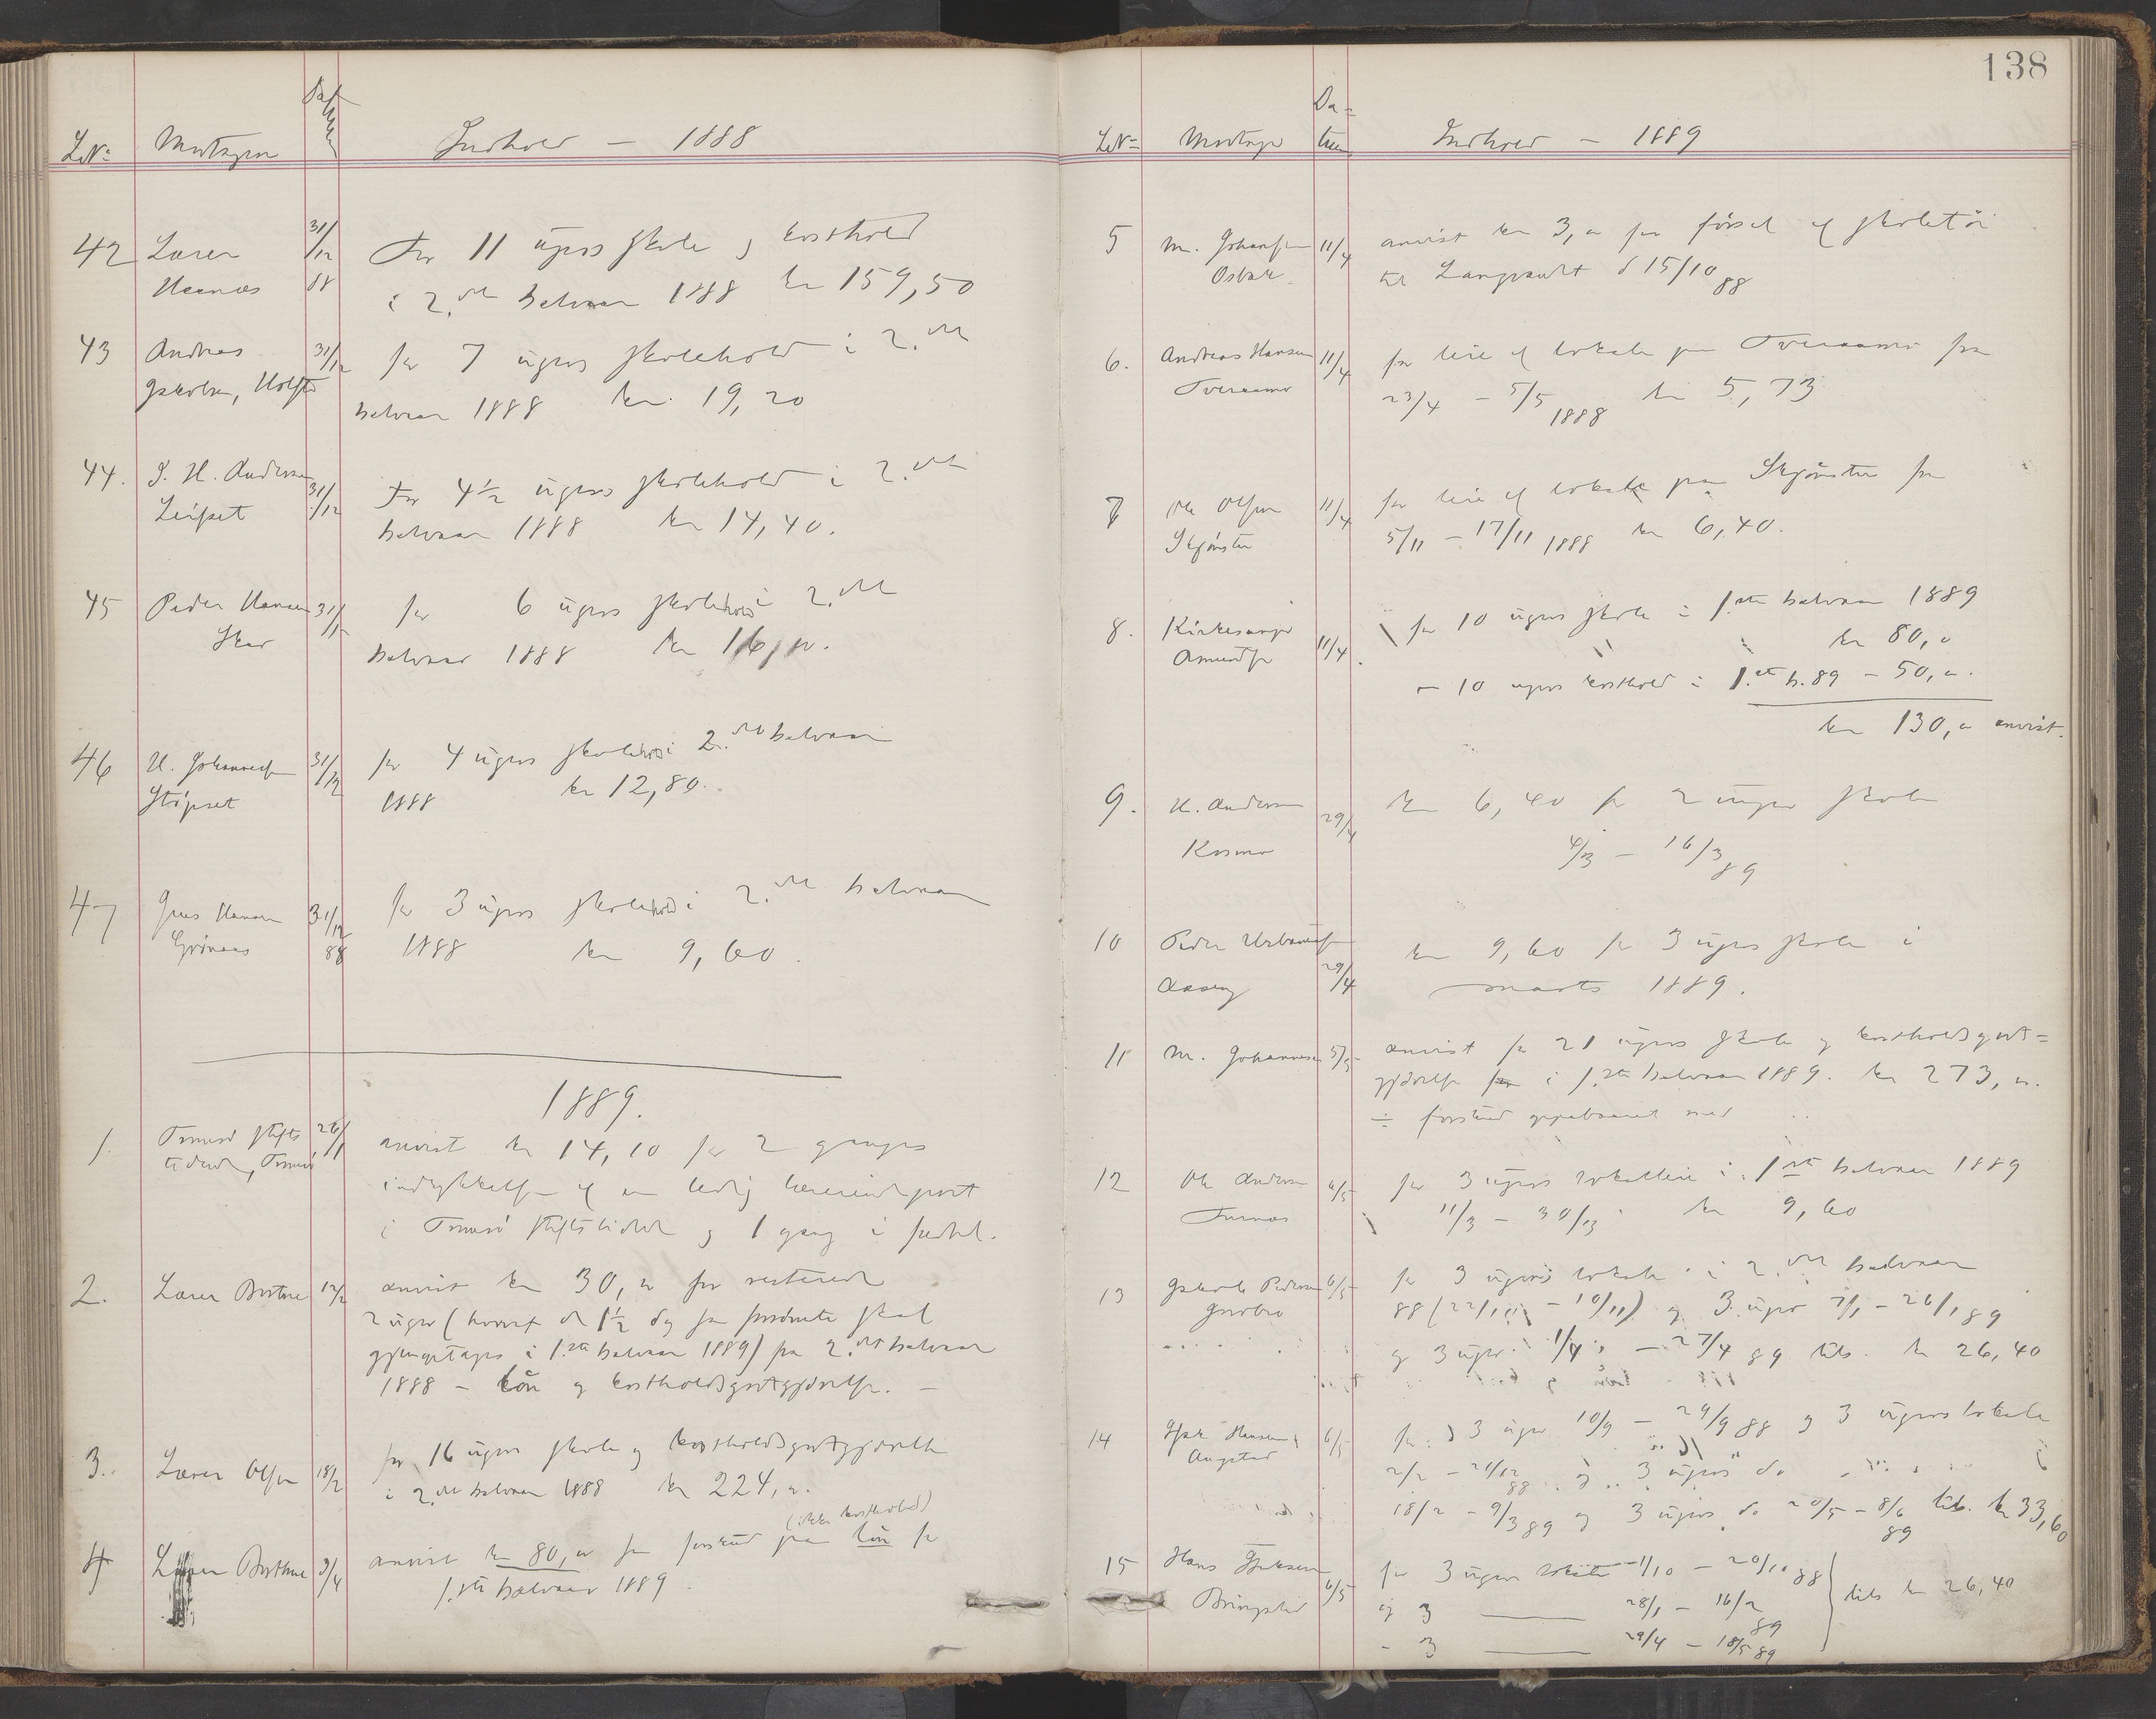 LNo Modtager Datum Indhold — 1888
42 Lærer 31/12 For 11 ugers skole og kosthold
88 i 2.det halvaar 1888 kr 159,50
43 Andreas 31/12 for 7 ugers skolehold i 2.det
Jakobsen, halvaar 1888 kr. 19,20
44. Andersen 31/12 For 4½ ugers skolehold i 2.det
Leifset halvaar 1888 kr 14,40.
45 Peder Hansen 31/12 for 6 ugers skolehold i 2.det
Skar halvaar 1888 kr
46 H. Johannessen 31/12 for 4 ugers skolehold i 2.det halvaar
Støpset 1888 kr 12,80.
47 Jens Hansen 31/12 for 3 ugers skolehold i 2.det halvaar
Grønaas 88 1888 kr 9,60.
1889.
1. Tromsø stifts 26/1 anvist kr 14,10 for 2 ganges
tidende, Tromsø indrykkelse af en ledig lærerindepost
i Tromsø stiftstidende og 1 gang i
2. Lærer 12/2 anvist kr 30, for resterende
2 uger (hvoraf de 1½ dag skal
gjengetages i 1.ste halvaar 1889) for 2.det halvaar
1888 – løn og kostholdsgodtgjørelse. –
3. Lærer Olsen 18/2 for 16 ugers skole og kostholdsgodtgjørelse
i 2.det halvaar 1888 kr 224,
(ikke kosthold)
4 Lærer 9/4 anvist kr 80, som forskud paa løn for
1.ste halvaar 1889.
138
LNo Modtager Datum Indhold — 1889
5 M. Johansen 11/4 anvist kr 3, for førsel af skoletøi
Osbak til d 15/10 88
6. Andreas Hansen 11/4 for leie af lokale paa Tveraamo fra
Tveraamo 23/4 – 5/5 1888 kr 5,73
7 Ole Olsen 11/4 for leie af lokale paa Skjønstu fra
Skjønstu 5/11 – 17/11 1888 kr 6,40.
8. Kirkesanger 11/4 for 10 ugers skole i 1.ste halvaar 1889
kr 80,
– 10 ugers kosthold i 1.ste h. 89 – 50,
kr 130, anvist.
9. H. Andersen 29/4 kr 6,40 for 2 ugers skole
Kosmo 4/3 – 16/3 89
10 Peder 29/4 kr 9,60 for 3 ugers skole i
Aaseng marts 1889.
11 M. Johannesen anvist for 21 ugers skole og kostholdsgodt=
gjørelse i 1.ste halvaar 1889. kr 273,
÷ forskud
12 Ole Andersen 6/5 for 3 ugers lokalleie i 1.ste halvaar 1889
11/3 – 30/3 kr 9,60
13 Jakob Pedersen 6/5 for 3 ugers lokale i 2.det halvaar
88 og 3 uger 7/1 – 26/1 89
og 3 uger – 27/4 89 tils. kr 26,40
14 6/5 for 3 uger 10/9 – 29/9 88 og 3 ugers lokale
88 og 3 ugers do
18/2 – 9/3 89 og 3 ugers do 20/5 – 8/6 89 tils. kr 33,60
15 Hans 6/5 for 3 ugers lokale 1/10 – 20/10 88
og 3 —— 28/1 – 16/2 89 tils kr 26,40
– 3 —— 29/4 – 18/5 89